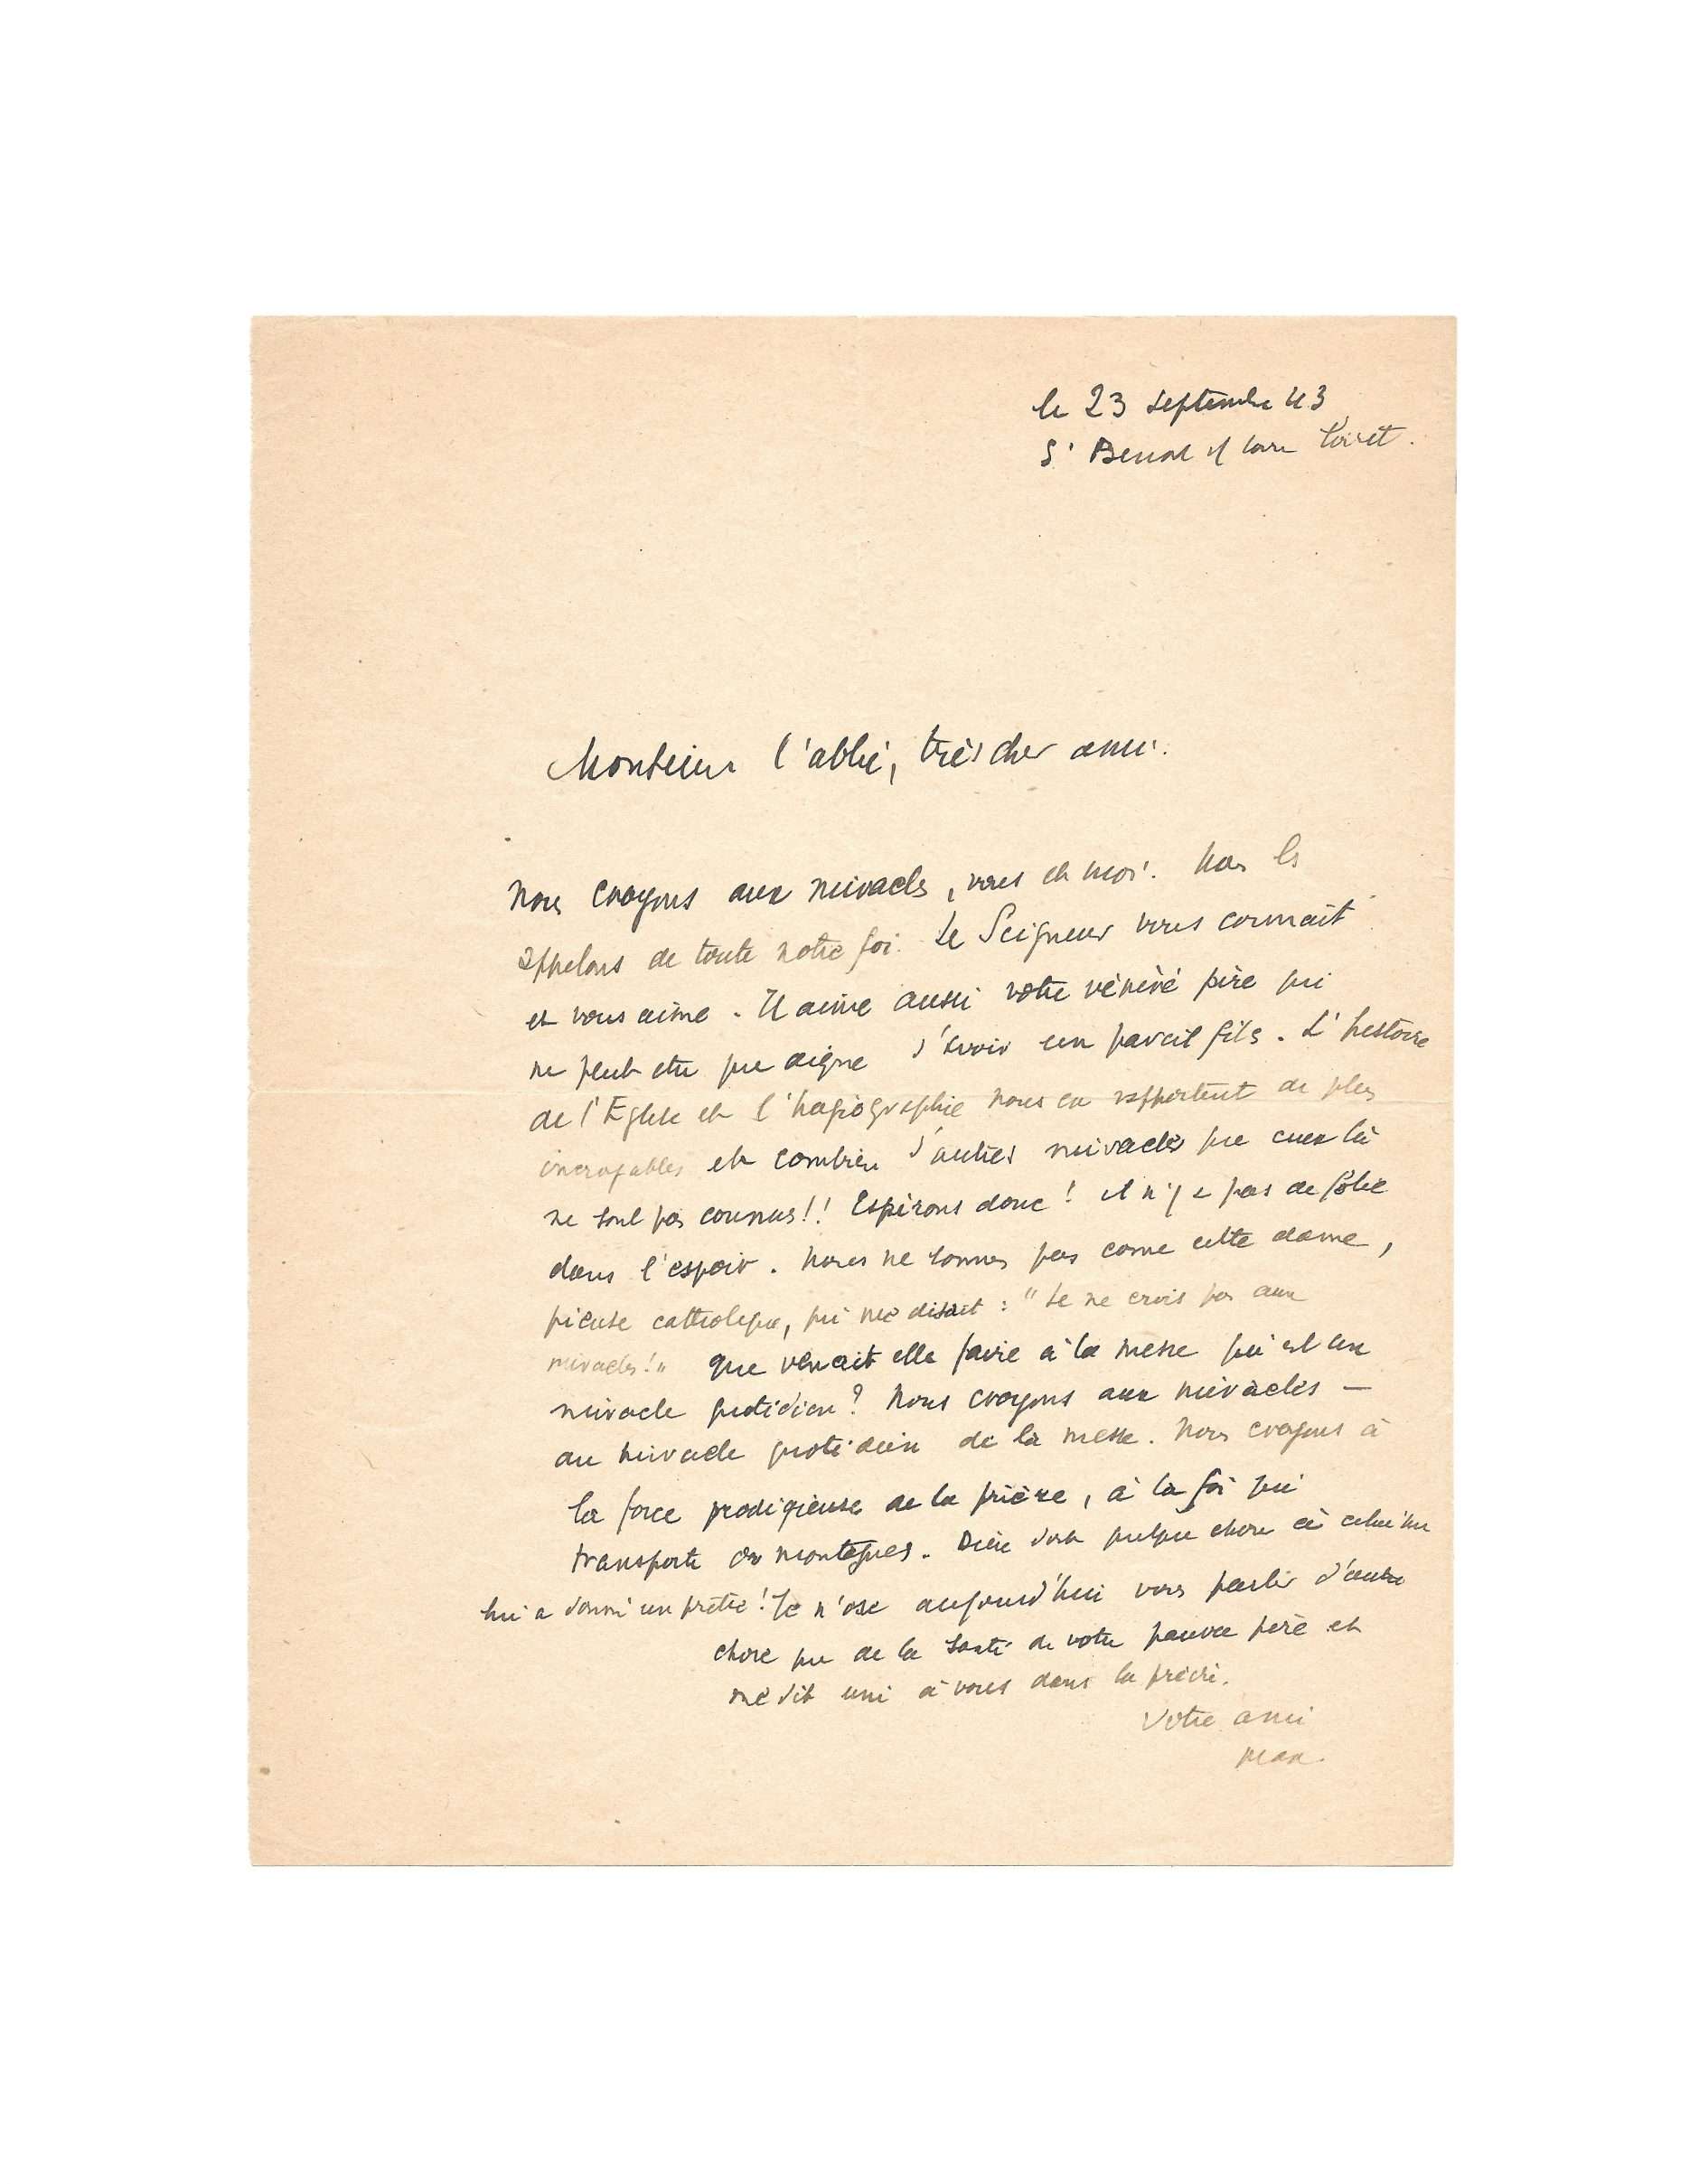 le 23 septembre 43
St Benoit s/ Loire Loiret.
Monsieur l'abbé, très cher ami.
Nous croyons aux miracles, vous et moi. Nous les
appelons de toute notre foi. Le Seigneur vous connait
et vous aime. Il aime aussi votre vénéré père qui
ne peut etre que digne d'avoir un pareil fils. L'histoire
de l'Eglise et l'hagiographie nous en rapportent de plus
incroyables et combien d'autres miracles que ceux là
ne sont pas connus!! Espérons donc! il n'y a pas de folie
dans l'espoir. Nous ne sommes pas come cette dame,
pieuse catholique, qui me disait : "Je ne crois pas aux
miracles!" que venait elle faire à la messe qui est un
miracle quotidien? Nous croyons aux miracles —
au miracle quotidien de la messe. Nous croyons à
la force prodigieuse de la prière, à la foi qui
transporte les montagnes. Dieu doit quelque chose à celui qui
lui a donné un prêtre! Je n'ose aujourd'hui vous parler d'autre
chose que de la santé de votre pauvre père et
me dit uni à vous dans la prière.
Votre ami
Max.